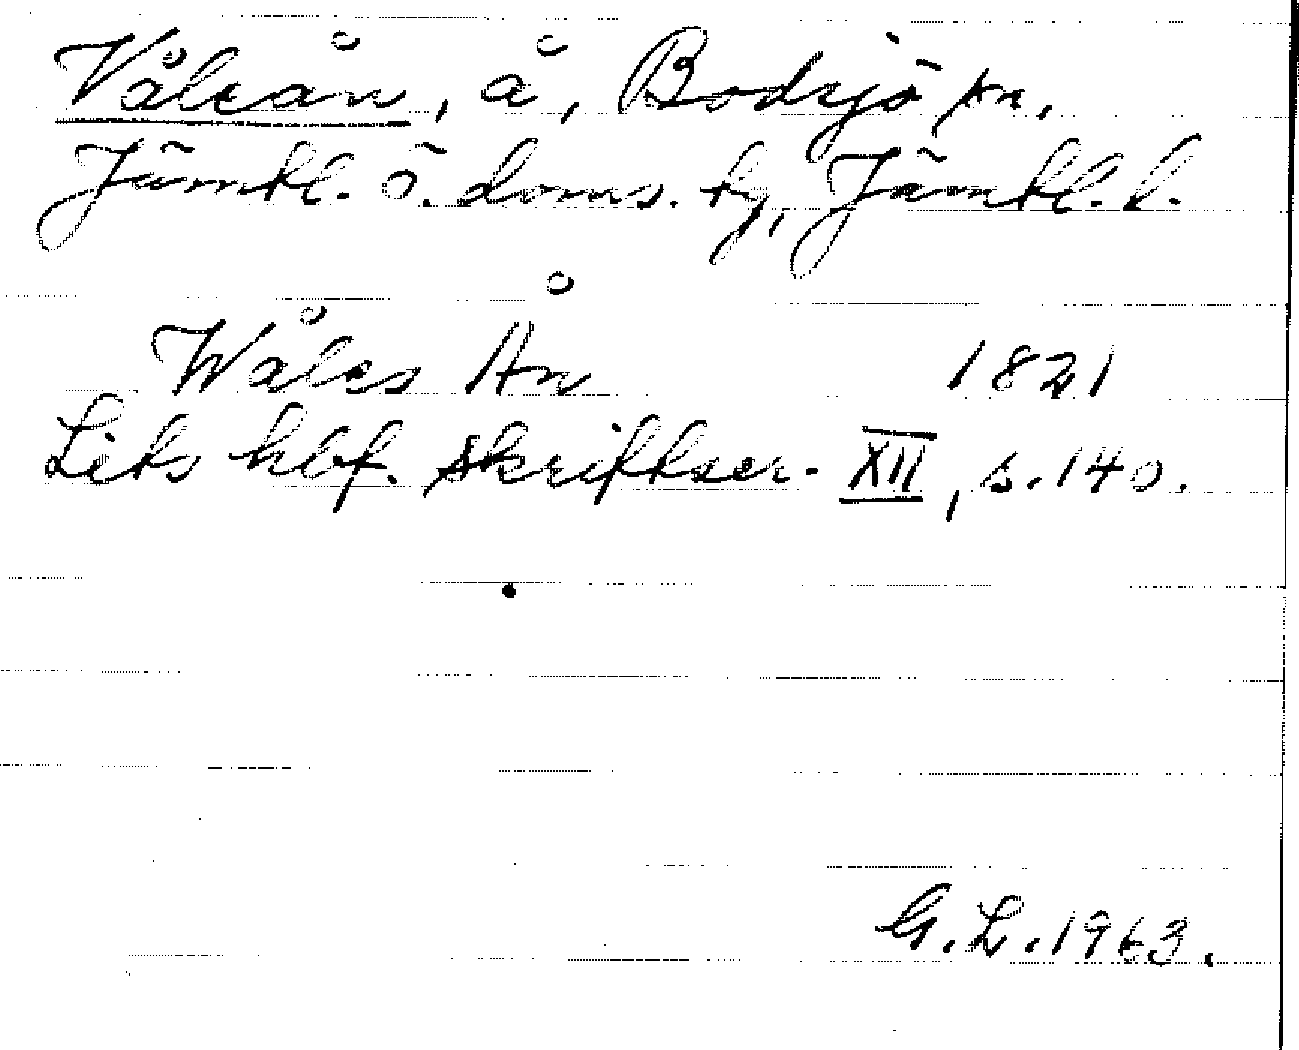 Vålsån, å, Bodsjö sn,
Jämtl. ö. doms. tg, Jämtl. l.
Wåles Ån 1821
Lits hbf. skriftser. XII, s. 140.
G. L. 1963.